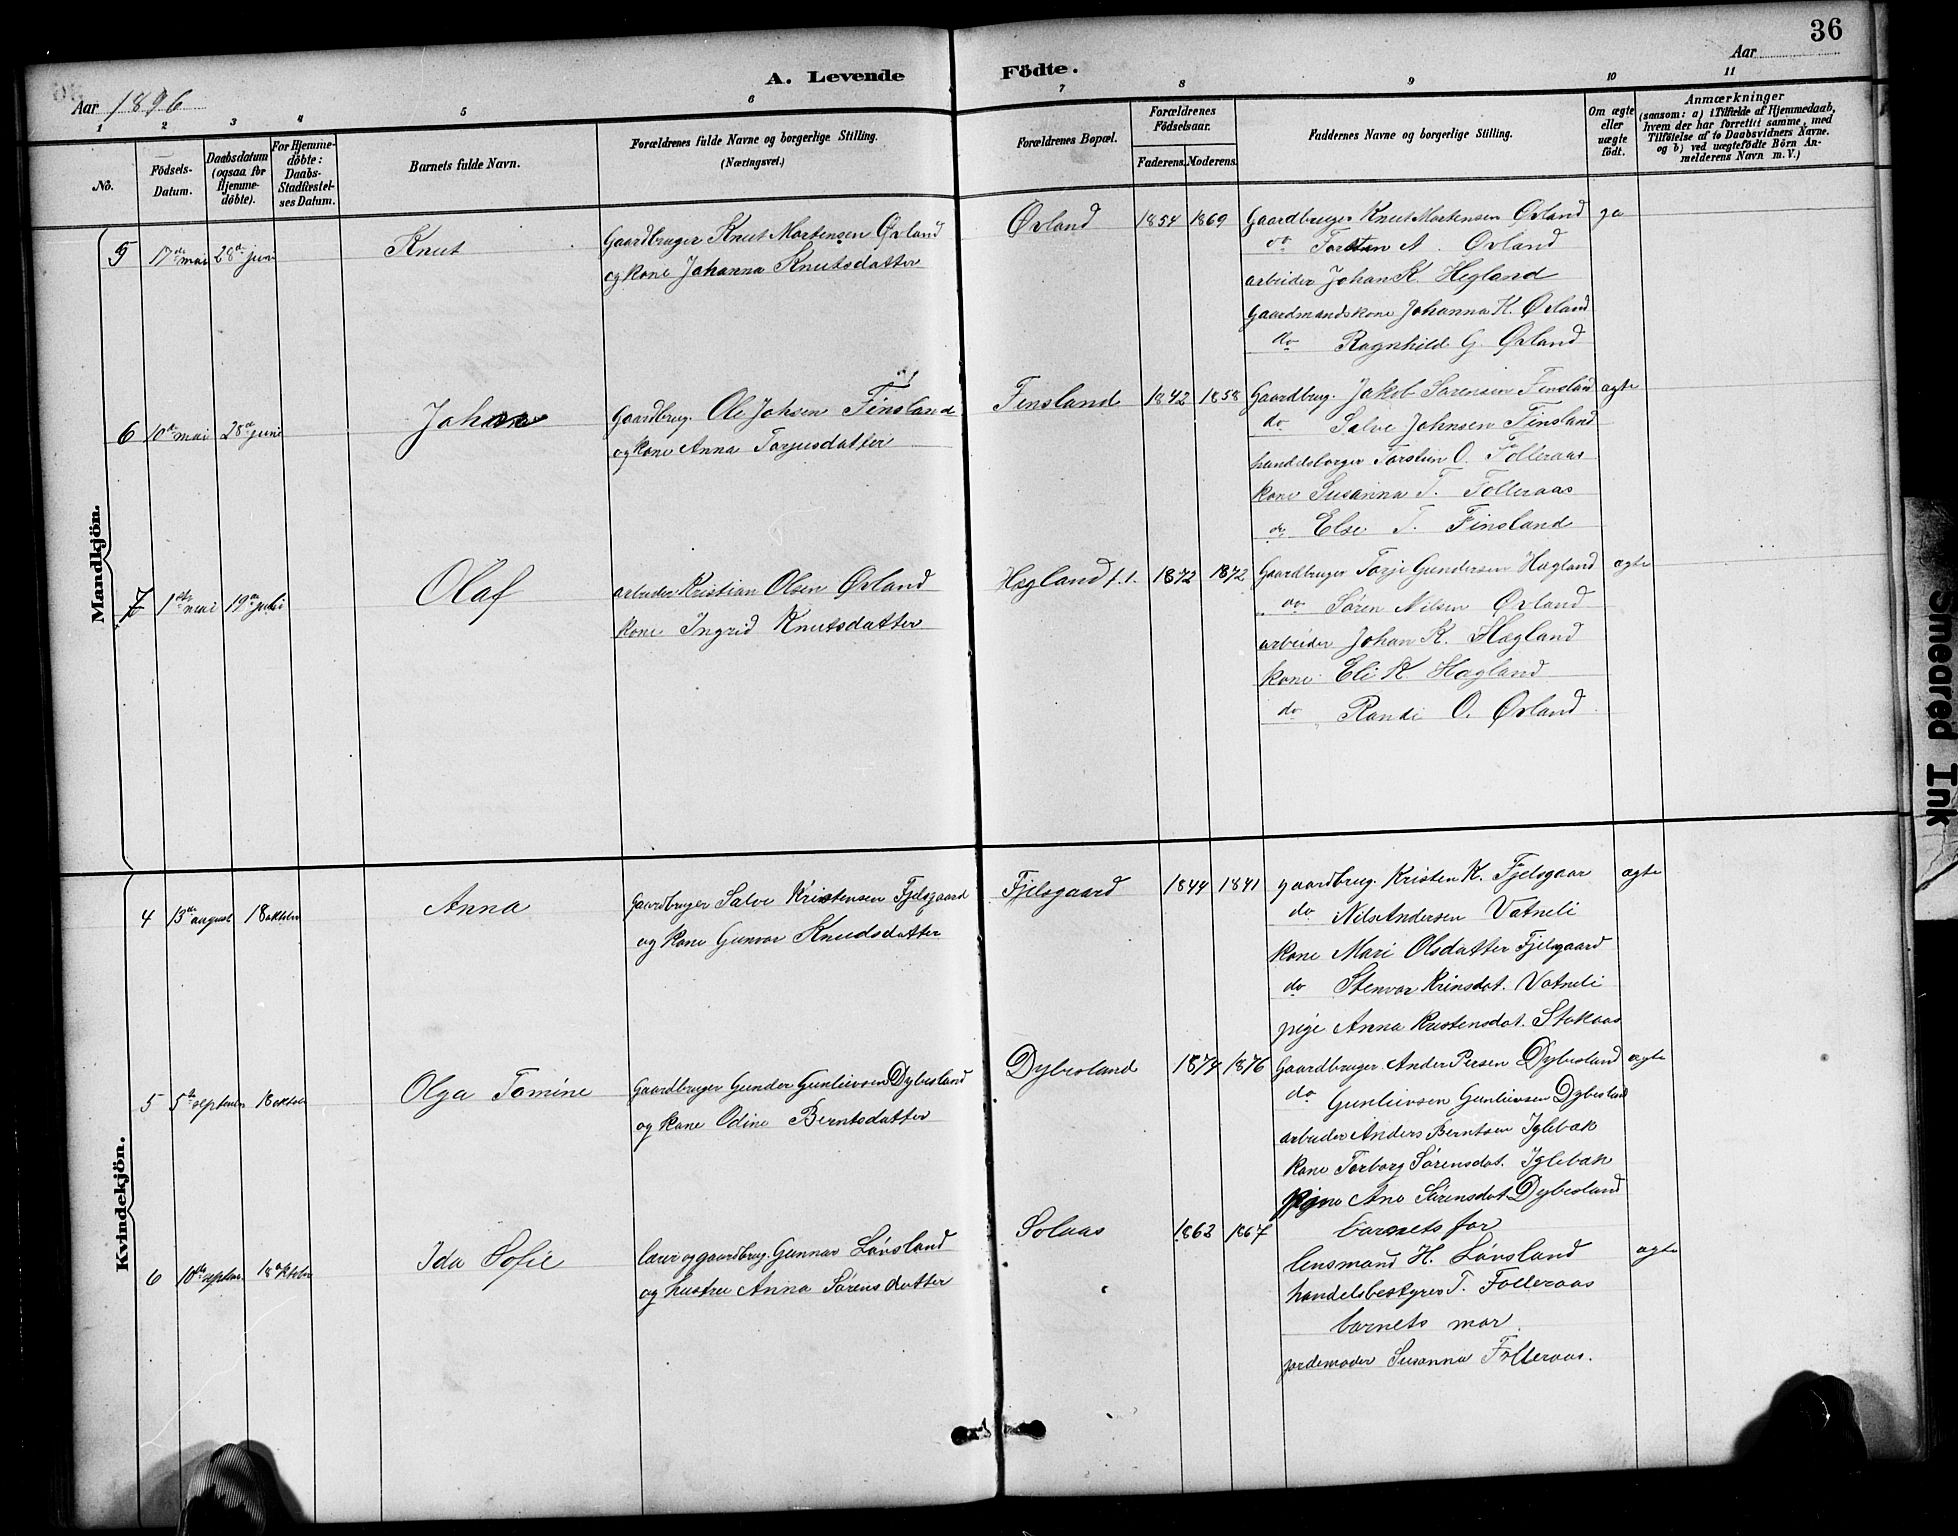 36
A. Levende Födte.
Aar 1896
Aar
1 2 3 4 5 6 7 8 9 10 11
No.
Födsels-
Datum.
Daabsdatum
(ogsaa for
Hjemme-
döbte).
For Hjemme-
döbte:
Daabs-
Stadfæstel-
ses Datum.
Barnets fulde Navn.
Forældrenes fulde Navne og borgerlige Stilling.
(Næringsvei.)
Forældrenes Bopæl.
Forældrenes
Födselsaar.
Faderens. Moderens.
Faddernes Navne og borgerlige Stilling.
Om ægte
eller
uægte
födt.
Anmærkninger
(saasom: a) i Tilfælde af Hjemmedaab,
hvem der har forrettet samme, med
Tilföielse af to Daabsvidners Navne.
og b) ved uægtefödte Börn An-
melderens Navn m. V.)
Mandkjön.
5 17de mai 28de juni Knut
Gaardbruger Knut Mortensen Øvland
og kone Johanna Knutsdatter
Øvland 1854 1869
Gaardbruger Knut Mortensen Øvland
do Torsten A. Øvland
arbeider Johan K. Hegland
Gaardmandskone Johanna K. Øvland
do Ragnhild G. Øvland
6 10de mai 28de juni Johan
Gaardbrug. Ole Johsen Finsland
og kone Anna Torjusdatter
Finsland 1842 1858
Gaardbrug. Jakob Sørensen Finsland ægte
do Salve Johnsen Finsland
handelsborger Torsten O. Folleraas
kone Susanna T. Folleraas
do Else T. Finsland
7 1ste mai 19de juli Olaf
arbeider Kristian Olsen Øvland
kone Ingrid Knutsdatter
Hægland 1872 1872
Gaardbruger Torje Gundersen Hægland ægte
do Søren Nilsen Øvland
arbeider Johan K. Hægland
kone Eli K. Hægland
do Randi O. Øvland
Kvindekjön.
4 13de august 18 oktober Anna
Gaardbruger Salve Kristensen Fjelsgaard
og kone Gunvor Knudsdatter
Fjelsgaard 1844 1841
gaardbrug. Kristen K. Fjelsgaar ægte
do Nils Andersen Vatneli
kone Mari Olsdatter Fjelsgaard
do Stenvor Vatneli
pige Anna Kristensdat. Stokaas
5 5te september 18 oktober Olga Tomine
Gaardbruger Gunder Gunleivsen Dybesland
og kone Odine Berntsdatter
Dybesland 1874 1876
Gaardbruger Ander Persen Dybesland ægte
do Gunleivsen Gunleivsen Dybesland
arbeider Anders Berntsen Iglebæk
kone Torborg Sørensdat. Iglebæk
pige Ane Sørensdat Dybesland
6 10de septbr. 18 oktober Ida Sofie
lærer og gaardbrug. Gunnar Løvsland
og hustru Anna Sørensdatter
Solaas 1862 1867
barnets far
lensmand H. Løvsland ægte
handelsbestyrer T. Folleraas
barnets mor
jordemoder Susanna Folleraas.
Smeared Ink